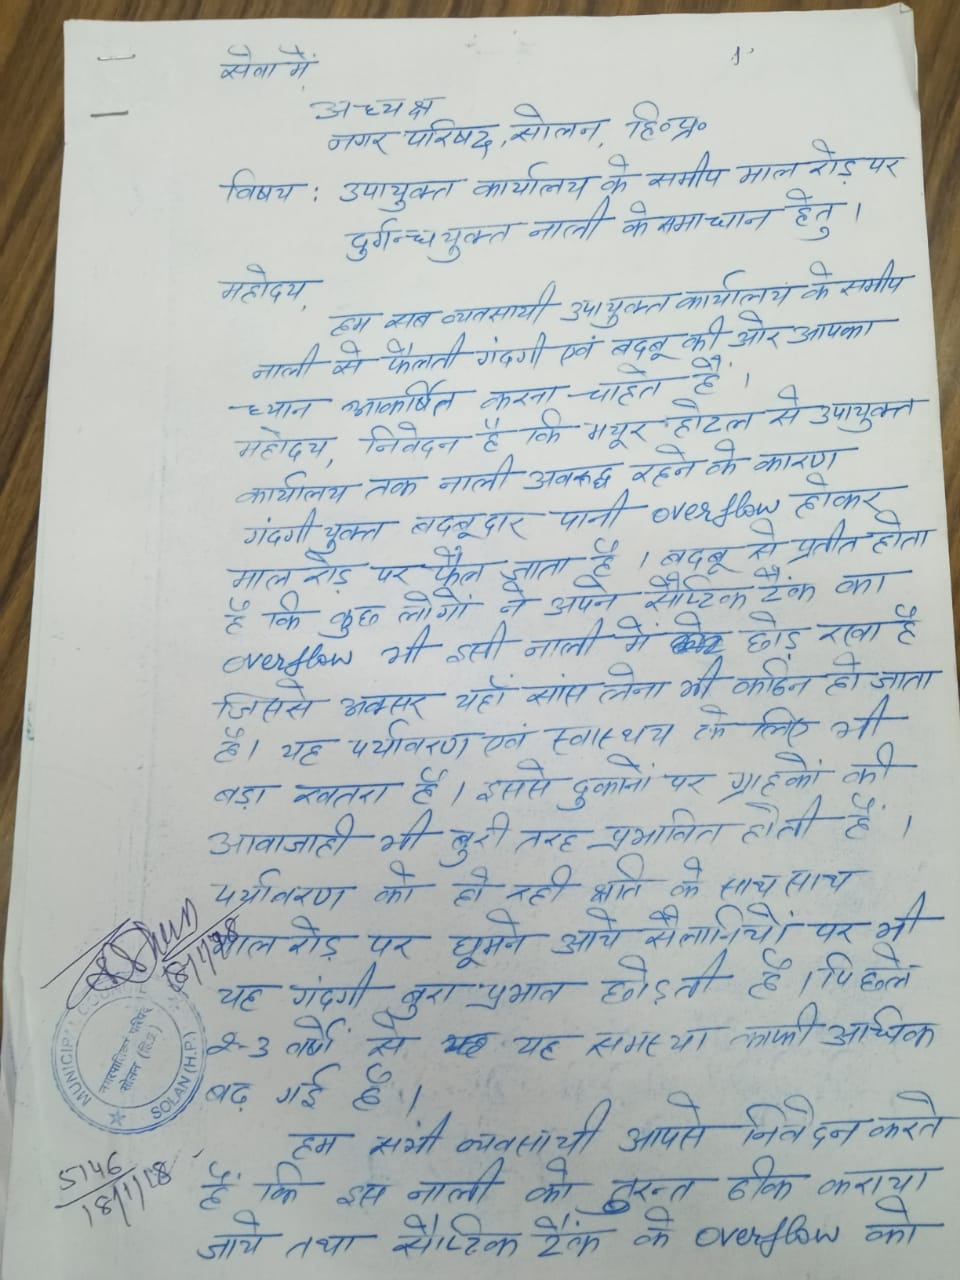 1
सेवा में
अध्यक्ष
नगर परिषद, सोलन, हि०प्र०
विषय : उपायुक्त कार्यालय के समीप माल रोड़ पर
दुर्गन्धयुक्त नाली के समाधान हेतु ।
महोदय,
हम सब व्यवसायी उपायुक्त कार्यालय के समीप
नाली से फैलती गंदगी एवं बदबू की ओर आपका
ध्यान आकर्षित करना चाहते हैं ।
महोदय, निवेदन है कि मयूर होटल से उपायुक्त
कार्यालय तक नाली अवरूद्ध रहने के कारण
गंदगीयुक्त बदबूदार पानी overflow होकर
माल रोड़ पर फैल जाता है । बदबू से प्रतीत होता
है कि कुछ लोगों ने अपने सैप्टिक टैंक का
overflow भी इसी नाली में छोड़ रखा है
जिससे अक्सर यहाँ सांस लेना भी कठिन हो जाता
है। यह पर्यावरण एवं स्वास्थय के लिए भी
बड़ा खतरा है । इससे दुकानों पर ग्राहकों की
आवाजाही भी बुरी तरह प्रभावित होती हैं ।
पर्यावरण को हो रही क्षति के साथ साथ
माल रोड़ पर घूमने आये सैलानियों पर भी
यह गंदगी बुरा प्रभाव छोड़ती है । पिछले
2-3 वर्षों से यह समस्या काफी अधिक
बढ़ गई है ।
हम सभी व्यवसायी आपसे निवेदन करते
हैं कि इस नाली को तुरन्त ठीक कराया
जाये तथा सैप्टिक टैंक के overflow को
18/1/18
MUNICIPAL
नगरपालिका परिषद
सोलन (हि.प्र.)
SOLAN (H.P.)
5146
18/1/18